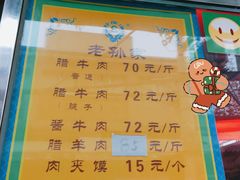 老孙家
腊牛肉 70元/斤
(普通)
腊牛肉 72元/斤
(腱子)
酱牛肉 72元/斤
腊羊肉 85元/斤
肉夹馍 15元/个